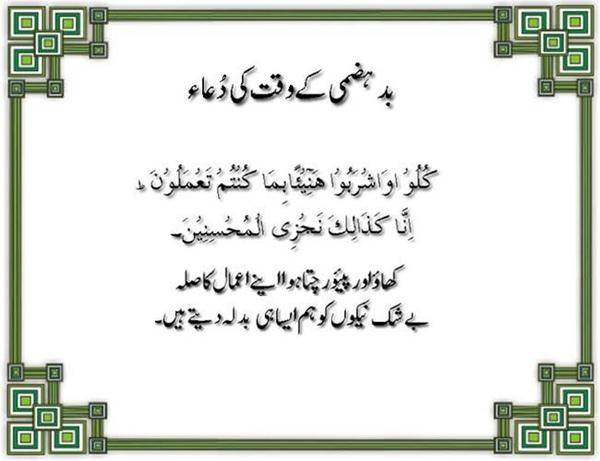 بد ہضمی کے وقت کی دُعاء
كُلُوْ اوَاشْرَبُوْا هَنِيْٓئًابِمَا كُنْتُمْ تَعْمَلُوْنَ ط
اِنَّا كَذَالِكَ نَجْزِى الْمُحْسِنِيْنَ۔
کھاؤ اور پیؤ رچتا ہوا اپنے اعمال کا صلہ
بے شک نیکوں کو ہم ایسا ہی بدلہ دیتے ہیں۔